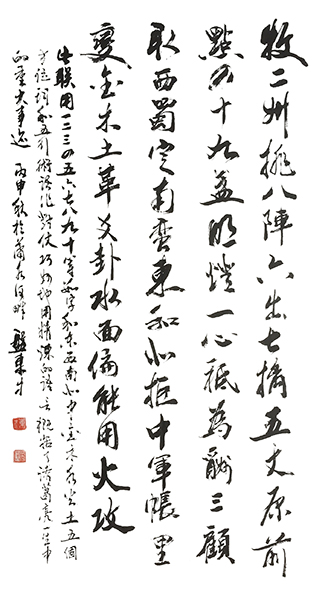 收二州排八陣六出七擒五丈原前
點四十九盞明燈一心祗為酬三顧
取西蜀定南蠻東和北拒中軍帳里
變金木土革爻卦水面偏能用火攻
此联用一二三四五六七八九十等数字和东西南北中金木水火土五個
方位詞和五行術語作對仗巧妙地用精煉的語言概括了諸葛亮一生中
的重大事迹 丙申秋於